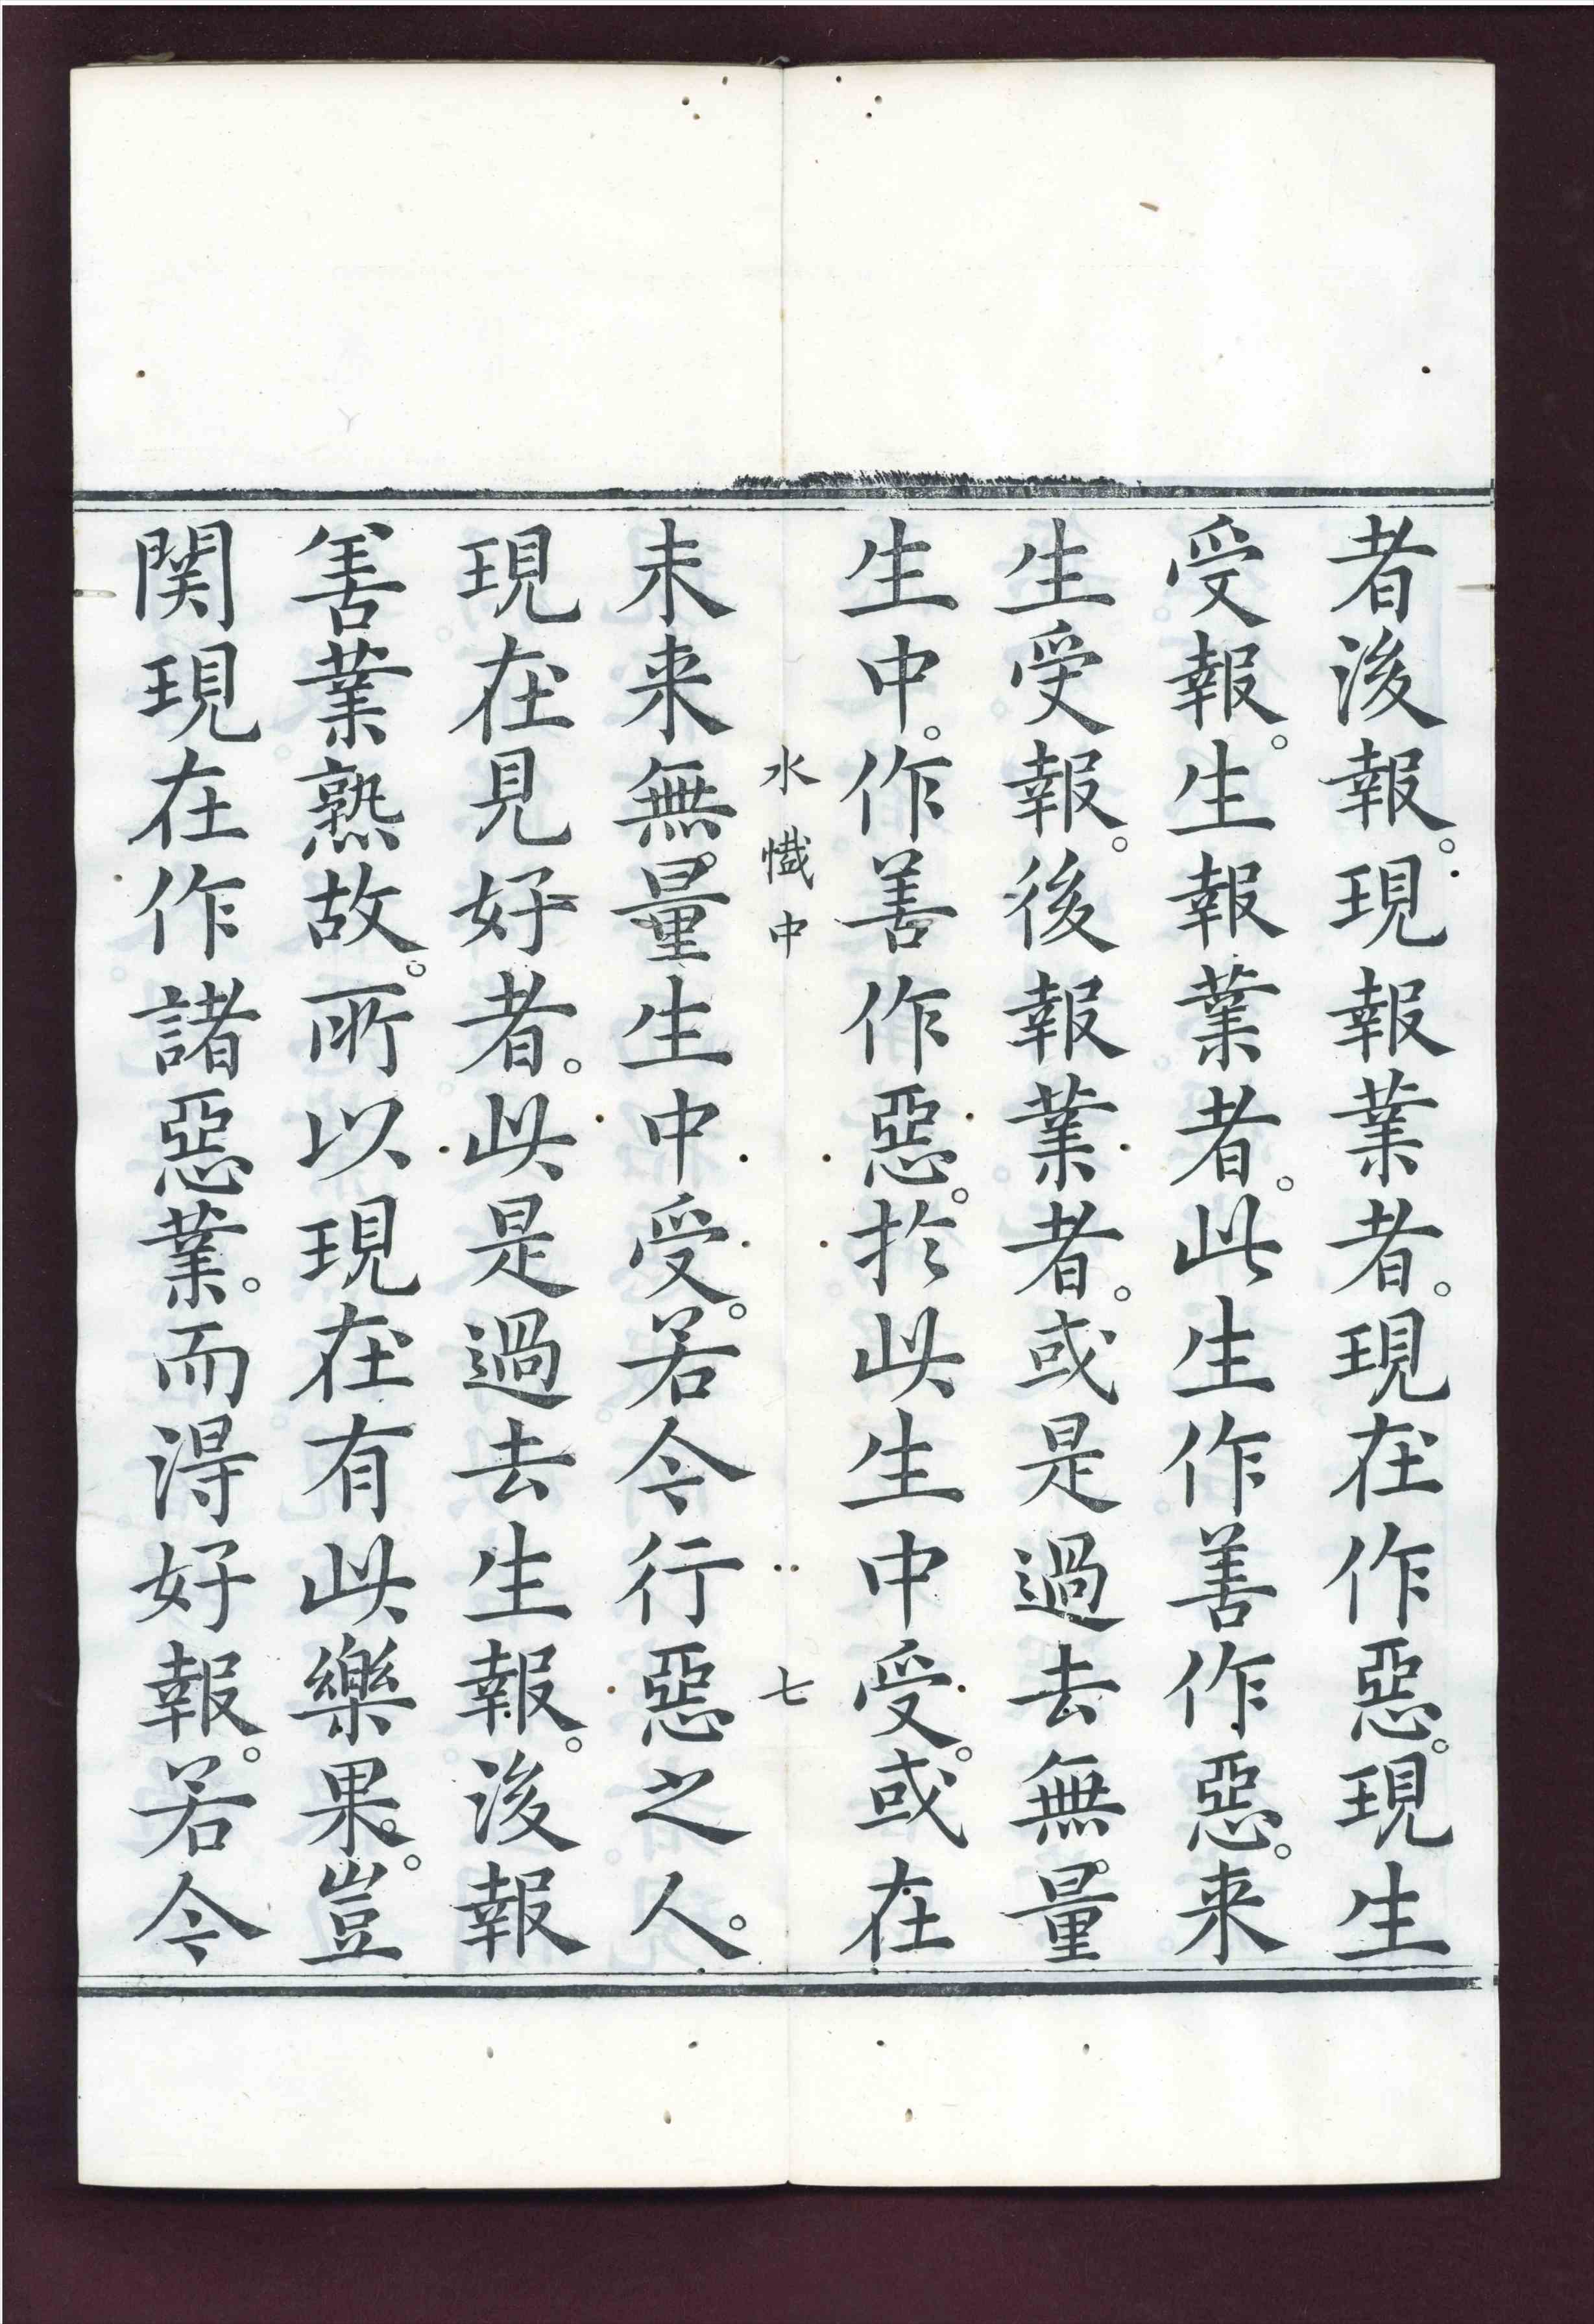 者後報。現報業者。現在作惡。現生
受報。生報業者。此生作善作惡。来
生受報。後報業者。或是過去無量
生中。作善作惡。於此生中受。或在
水懺中 七
未来無量生中受。若今行惡之人。
現在見好者。此是過去生報。後報
善業熟故。所以現在有此樂果。豈
関現在作諸惡業。而得好報。若今